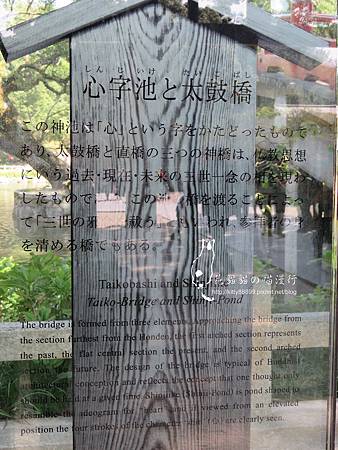 しんじいけ たいこばし
心字池と太鼓橋
この神池は「心」という字をかたどったもので
あり、太鼓橋と直橋の三つの神橋は、仏教思想
にいう過去・現在・未来の三世一念の相を現わ
したもので この 橋を渡ることによっ
て「三世の邪 祓う」 いわれ、参拝者の身
を清める橋でもある。
Taikobashi and Shi
Taiko-Bridge and Shinji-Pond
The bridge is formed from three elements. Approaching the bridge from
the section furthest from the Honden, the first arched section represents
the past, the flat central section the present, and the second arched
section the future. The design of the bridge is typical of Buddhist
architectural conception and reflects the concept that one thought only
should be held at a given time. Shinjiike (Shinji-Pond) is pond shaped to
resemble the ideogram for "heart" and if viewed from an elevated
position the four strokes of the character "shin" (心) are clearly seen.
貓貓的貓漫行
http://kitty88899.pixnet.net/blog